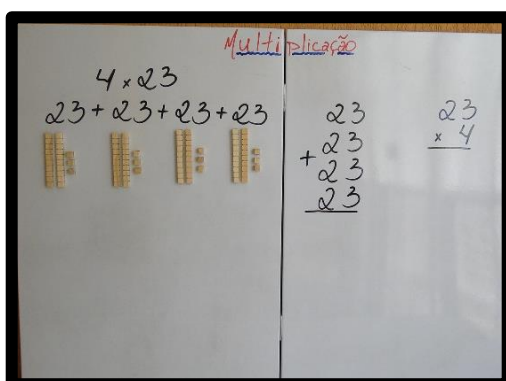 Multiplicação
4 x 23
23 + 23 + 23 + 23
23
23
+ 23
23
23
x 4